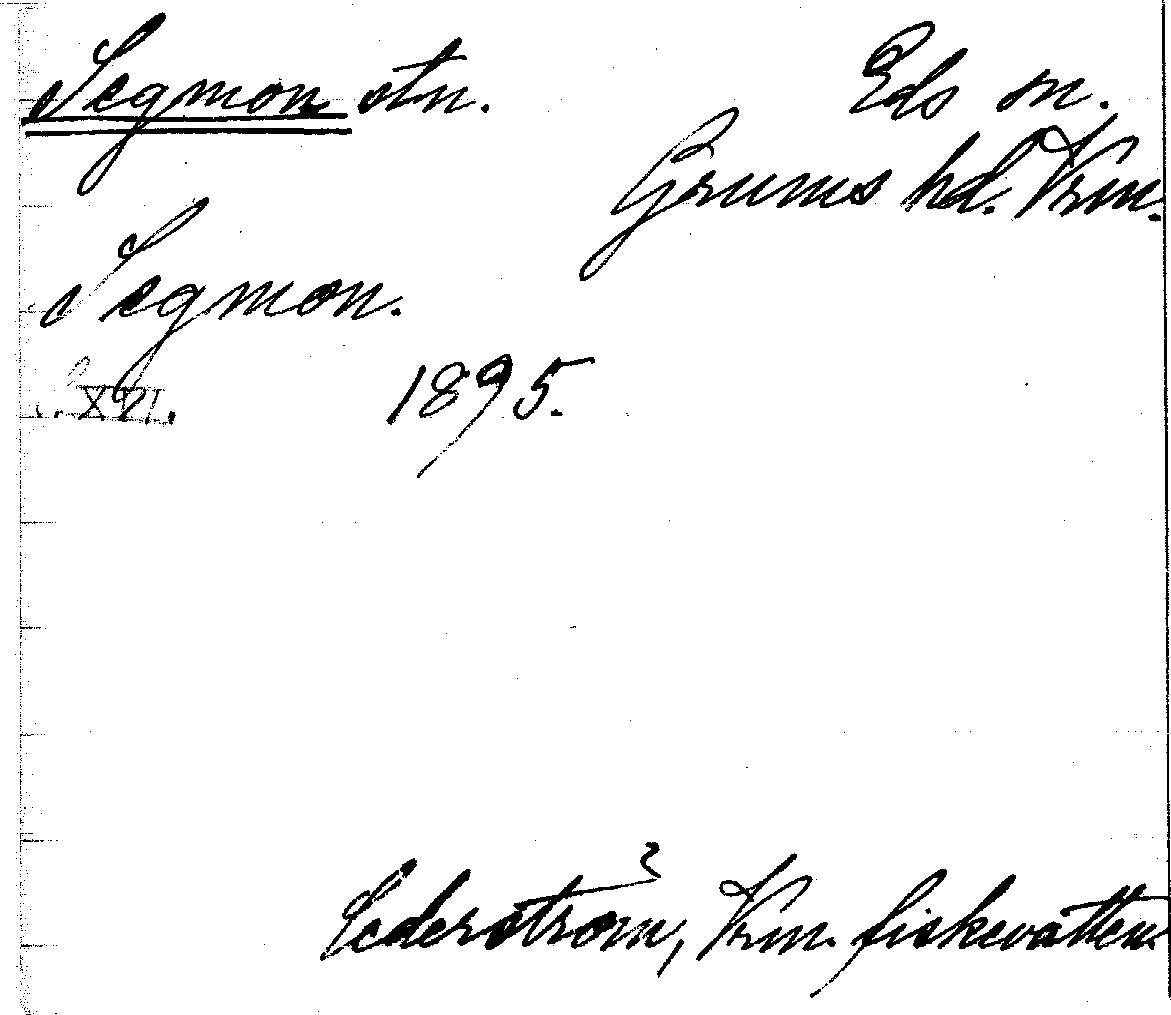 Segmon stn.
Eds sn.
Grums hd. Vrm.
Segmon.
XVI. 1895.
Cederström, Vrm. fiskevatten